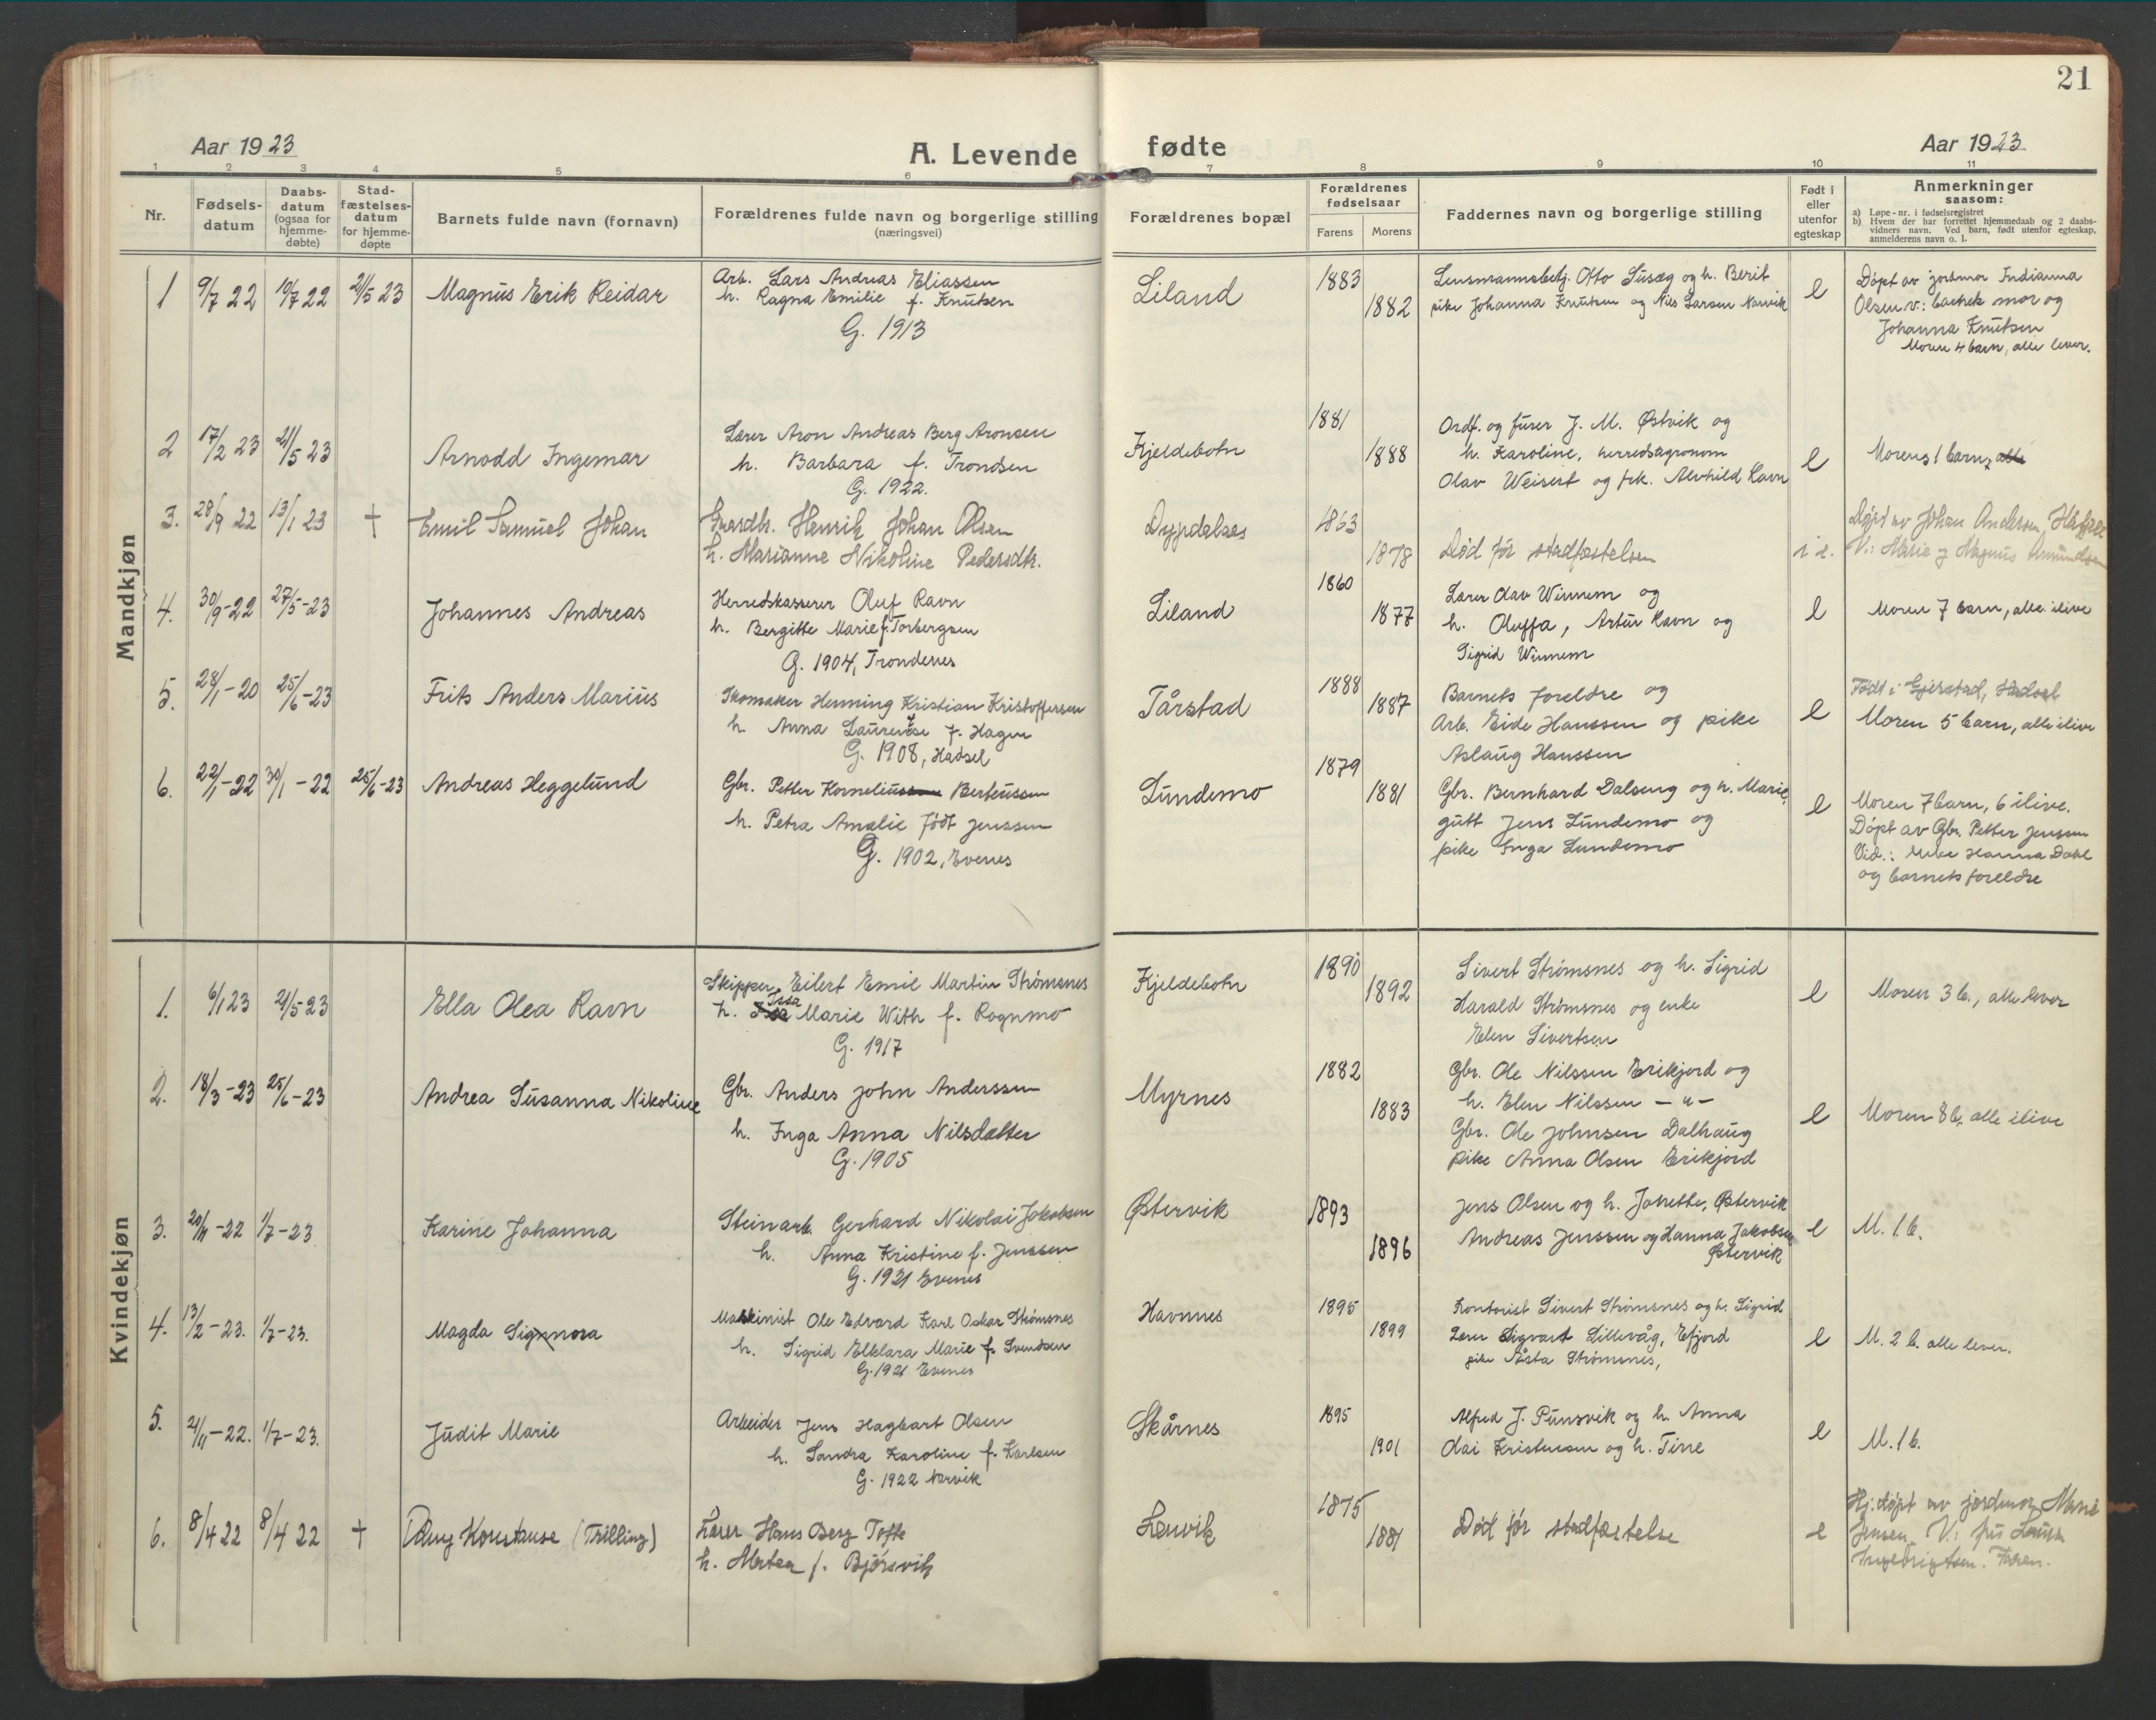 21
Aar 1923
A. Levende fødte
Aar 1923
1 2 3 4 5 6 7 8 9 10 11
Nr.
Fødsels-
datum
Daabs-
datum
(ogsaa for
hjemme-
døbte)
Stad-
fæstelses-
datum
for hjemme-
døpte
Barnets fulde navn (fornavn)
Forældrenes fulde navn og borgerlige stilling
(næringsvei)
Forældrenes bopæl
Forældrenes
fødselsaar
Farens Morens
Faddernes navn og borgerlige stilling
Født i
eller
utenfor
egteskap
Anmerkninger
saasom:
a) Løpe-nr. i fødselsregistret
b) Hvem der har forrettet hjemmedaab og 2 daabs-
vidners navn. Ved barn, født utenfor egteskap,
anmelderens navn o. l.
Mandkjøn
1 9/7 22 10/7 22 21/5 23 Magnus Erik Reidar
Arb. Lars Andreas Eliassen
h. Ragna Emilie f. Knutsen
G. 1913
Liland
1883
1882
Lensmannsbetj. Otto Susæg og h. Berit
pike Johanna Knutsen og Nils Larsen Narvik
e
Døpt av jordmor Indianna
Olsen v.: barnets mor og
Johanna Knutsen
Moren 4 barn, alle lever.
2 17/2 23 21/5 23 Arnodd Ingemar
Lærer Aron Andreas Berg Aronsen
h. Barbara f. Trondsen
G. 1922.
Kjeldebotn
1881
1888
Ordf. og furer J. M. Østvik og
h. Karoline, herredsagronom
Olav Weisert og frk. Alvhild Ravn
e
Morens 1 barn, alle
3. 28/9 22 13/1 23 † Emil Samuel Johan
Gaardbr. Henrik Johan Olsen
h. Marianne Nikoline Pedersdtr.
Dyrdalaes
1863
1878
Død før stadfæstelsen
i e.
Døpt av Johan Andersen,
V.: Marie og Magnus Amundsen
4. 30/9-22 27/5-23 Johannes Andreas
Herredskasserer Oluf Ravn
h. Bergitte Marie f. Torbergsen
G. 1904, Trondenes
Liland
1860
1877
Lærer Olav Winnem og
h. Oluffa, Artur Ravn og
Sigrid Winnem
e
Moren 7 barn, alle ilive
5. 28/1-20 25/6-23 Frits Anders Marius
Skomaker Henning Kristian Kristoffersen
h. Anna Laurentse f. Hagen
G. 1908, Hadsel
Tårstad
1888
1887
Barnets foreldre og
Arb. Eide Hanssen og pike
Aslaug Hanssen
e
Født i Gjerstad, Hadsel
Moren 5 barn, alle ilive
6. 22/1-22 30/1-22 25/6-23 Andreas Heggelund
Gbr. Petter Korneliussen Berteussen
h. Petra Amalie født Jenssen
G. 1902, Evenes
Lundemo
1879
1881
Gbr. Bernhard Dalseng og h. Marie,
gutt Jens Lundemo og
pike Inga Lundemo
e
Moren 7 barn, 6 ilive.
Døpt av Gbr. Petter Jenssen
Vid.: enke Hanna Dahl
og barnets foreldre
Kvindekjøn
1. 6/1 23 21/5 23 Ella Olea Ravn
Skipper Eilert Emil Martin Strömsnes
Issa
h. Marie With f. Rognmo
G. 1917
Kjeldebotn
1890
1892
Sivert Strömsnes og h. Sigrid
Harald Strømsnes og enke
Elen Sivertsen
e
Moren 3 b., alle lever
2. 18/3-23 25/6-23 Andrea Susanna Nikoline
Gbr. Anders John Anderssen
h. Inga Anna Nilsdatter
G. 1905
Myrnes
1882
1883
Gbr. Ole Nilssen Erikjord og
h. Elen Nilssen -"-
Gbr. Ole Johnsen Dalhaug
pike Anna Olsen Erikjord
e
Moren 8 b. alle ilive
3. 20/11-22 1/7-23 Karine Johanna
Steinarb. Gerhard Nikolai Jakobsen
h. Anna Kristine f. Jenssen
G. 1921 Evenes
Østervik
1893
1896
Jens Olsen og h. Jonette, Østervik
Andreas Jenssen og Hanna Jakobsen
Østervik
e
M. 1 b.
4. 13/2-23. 1/7-23. Magda Signora
Maskinist Ole Edvard Karl Oskar Strömsnes
h. Sigrid Elklara Marie f. Svendsen
G. 1921 Evenes
Havnnes
1895
1899
Kontorist Sivert Strømsnes og h. Sigrid
Lærer Sigvart Lillevåg, Efjord
pike Åsta Strömsnes,
e
M. 2 b. alle lever.
5. 21/11-22. 1/7-23. Judit Marie
Arbeider Jens Hagbart Olsen
h. Sandra Karoline f. Karlsen
G. 1922 Narvik
Skårnes
1895
1901
Alfred J. Punsvik og h. Anna
Odai Kristensen og h. Tine
e
M. 1 b.
6. 8/4 22 8/4 22 † Konstanse (Trilling)
Lærer Hans Berg Tofte
h. Mertea f. Bjørsvik
Lenvik
1875
1881
Död før stadfæstelse
e
Hj: døpt av jordmor Marie
Jensen. V: fru
Ingebrigtsen.